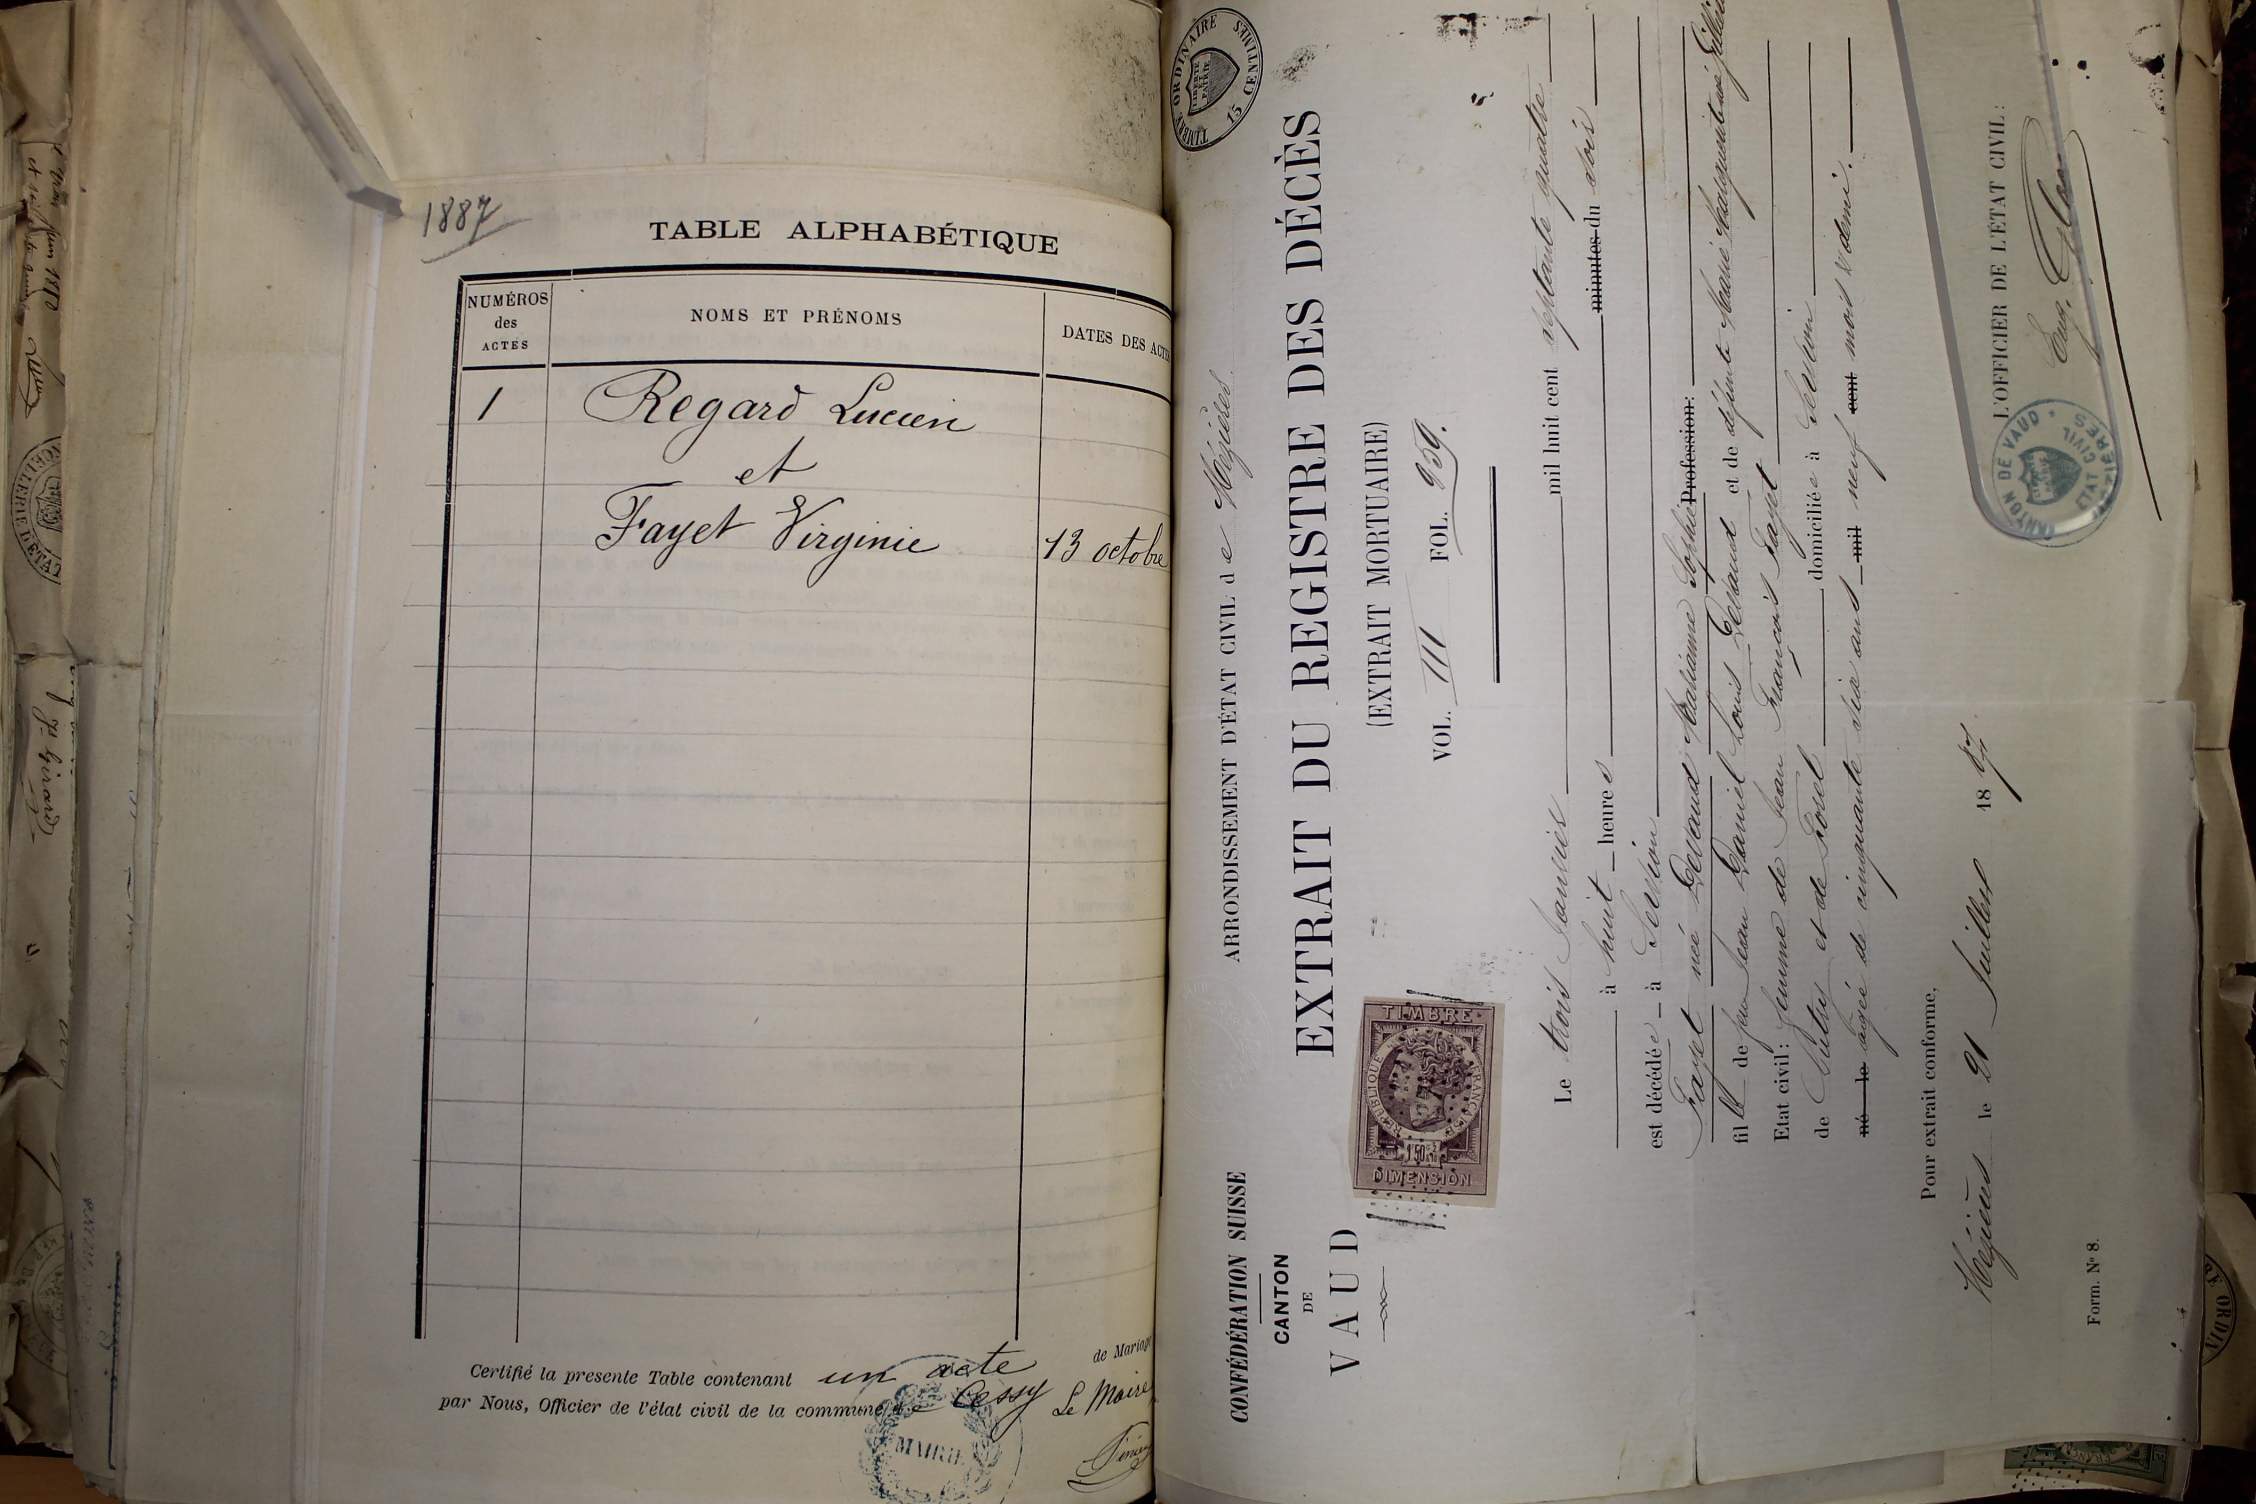 1887
TABLE ALPHABÉTIQUE
NUMÉROS
des
ACTES
NOMS ET PRÉNOMS
DATES DES ACTE
1
Regard Lucien
et
Fayet Virginie
13 octobre
Certifié la presente Table contenant un acte de Mariage
par Nous, Officier de l'état civil de la commune de Cessy Le Maire
MAIRIE
TIMBRE ORDINAIRE 15 CENTIMES
LIBERTÉ ET PATRIE
CONFÉDÉRATION SUISSE
CANTON
DE
VAUD
ARRONDISSEMENT D'ÉTAT CIVIL de Mézières
EXTRAIT DU REGISTRE DES DÉCÈS
(EXTRAIT MORTUAIRE)
VOL. III FOL. 259.
TIMBRE
RÉPUBLIQUE FRANÇAISE
1F50
DIMENSION
Le trois Janvier mil huit cent septante quatre
à huit heures minutes du soir
est décédée à Servion
Fayet née Devaud Marianne Sophie Profession:
fille de feu Jean Daniel Louis Devaud et de défunte Marie Marguerite née Gilliéron
Etat civil: femme de Jean François Fayet
de Vulry et de Forel domiciliée à Servion
né le âgée de cinquante six ans mil neuf cent mois & demi.
Pour extrait conforme,
Mézières le 21 Juillet 1887
L'OFFICIER DE L'ÉTAT CIVIL:
CANTON DE VAUD
ETAT CIVIL
MÉZIÈRES
Form. N° 8.